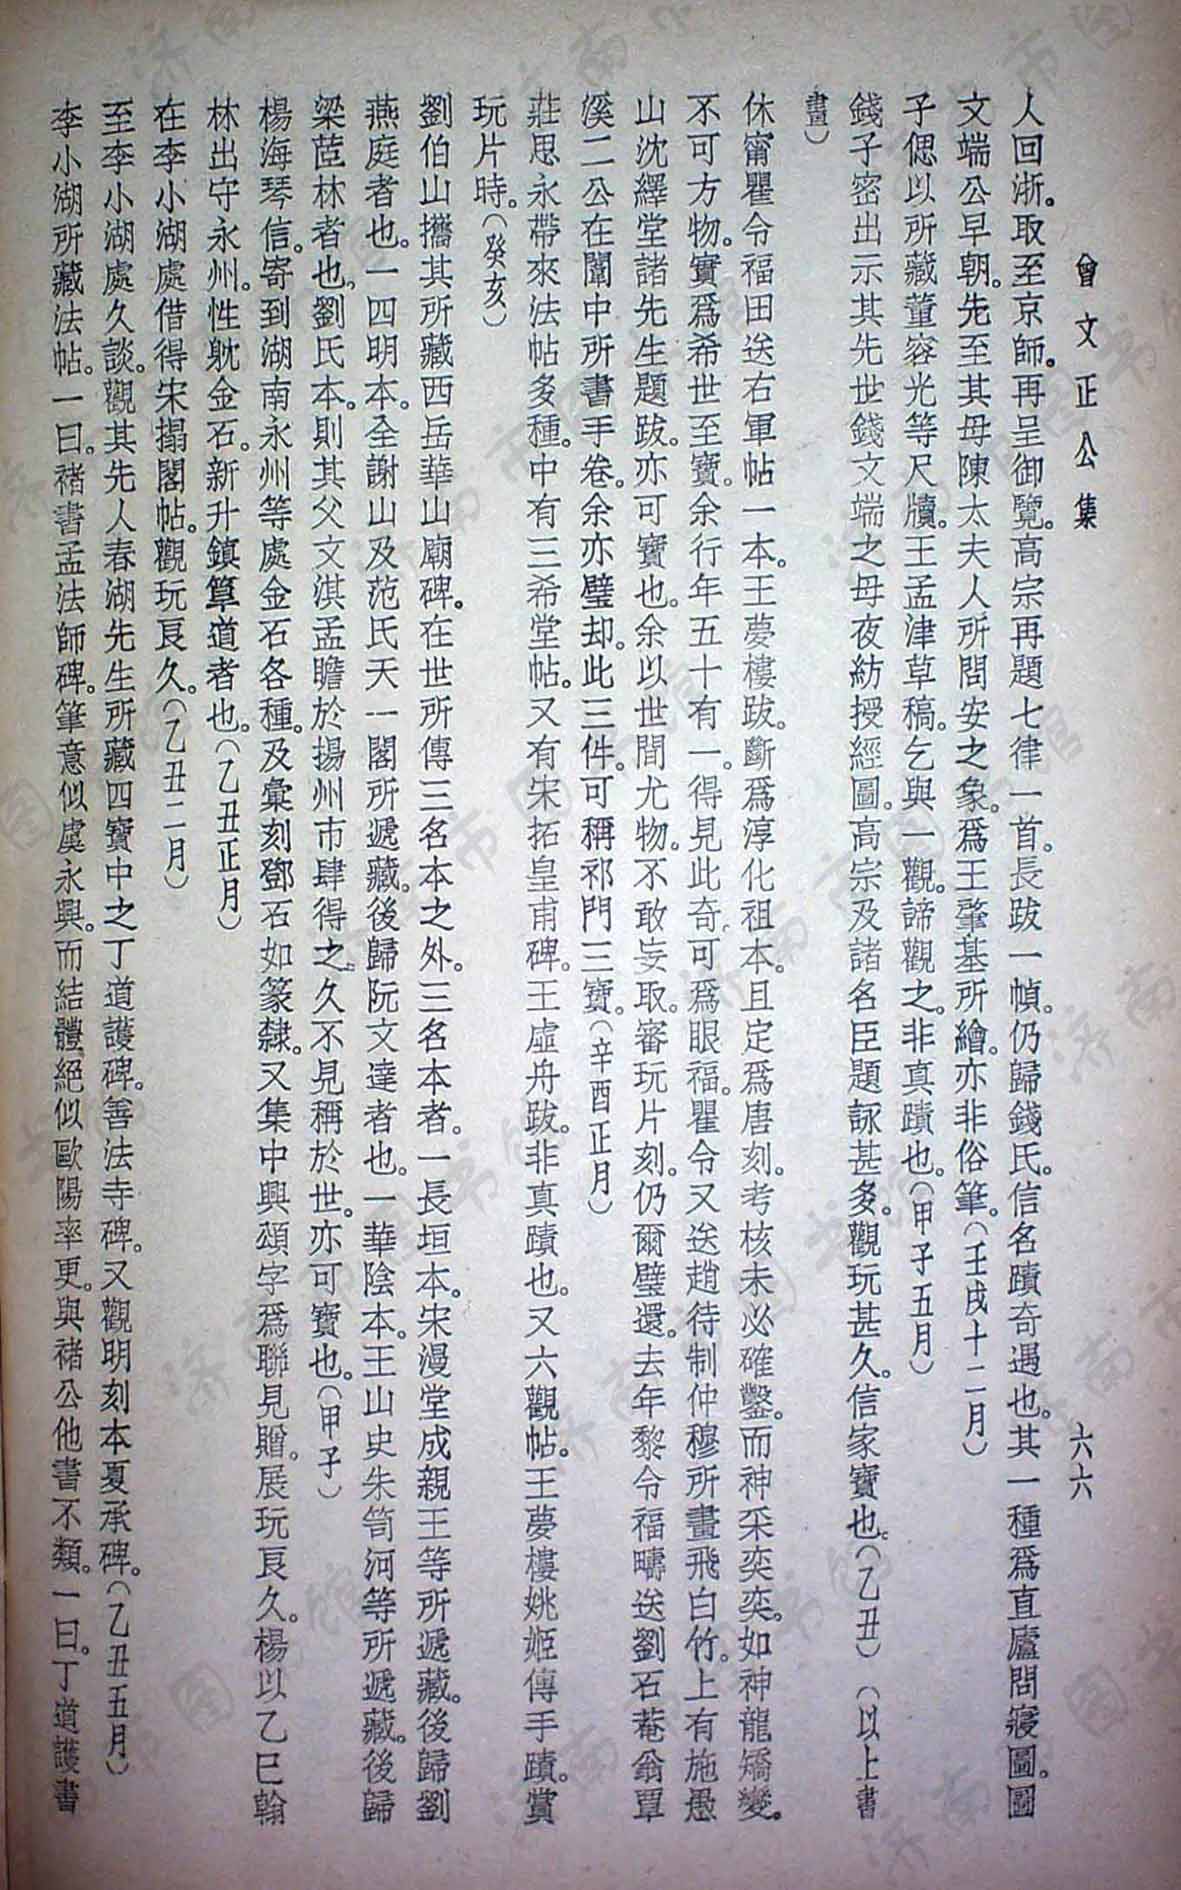 曾文正公集
六六
人回浙。取至京師。再呈御覽。高宗再題七律一首。長跋一幀。仍歸錢氏。信名蹟奇遇也。其一種爲直廬問寢圖。圖
文端公早朝。先至其母陳太夫人所問安之象。爲王肇基所繪。亦非俗筆。（壬戌十二月）
子偲以所藏董容光等尺牘。王孟津草稿。乞與一觀。諦觀之。非真蹟也。（甲子五月）
錢子密出示其先世錢文端之母夜紡授經圖。高宗及諸名臣題詠甚多。觀玩甚久。信家寶也。（乙丑）（以上書
畫）
休甯瞿令福田送右軍帖一本。王夢樓跋。斷爲淳化祖本。且定爲唐刻。考核未必確鑿。而神采奕奕。如神龍矯變。
不可方物。實爲希世至寶。余行年五十有一。得見此奇。可爲眼福。瞿令又送趙待制仲穆所畫飛白竹。上有施愚
山沈繹堂諸先生題跋。亦可寶也。余以世間尤物。不敢妄取。審玩片刻。仍爾璧還。去年黎令福疇送劉石菴翁覃
溪二公在闈中所書手卷。余亦璧却。此三件。可稱祁門三寶。（辛酉正月）
莊思永帶來法帖多種。中有三希堂帖。又有宋拓皇甫碑。王虛舟跋。非真蹟也。又六觀帖。王夢樓姚姬傳手蹟。賞
玩片時。（癸亥）
劉伯山攜其所藏西岳華山廟碑。在世所傳三名本之外。三名本者。一長垣本。宋漫堂成親王等所遞藏。後歸劉
燕庭者也。一四明本。全謝山及范氏天一閣所遞藏。後歸阮文達者也。一華陰本。王山史朱笥河等所遞藏。後歸
梁茝林者也。劉氏本。則其父文淇孟瞻於揚州市肆得之。久不見稱於世。亦可寶也。（甲子）
楊海琴信。寄到湖南永州等處金石各種。及彙刻鄧石如篆隸。又集中興頌字爲聯見贈。展玩良久。楊以乙巳翰
林出守永州。性躭金石。新升鎮篁道者也。（乙丑正月）
在李小湖處借得宋搨閣帖。觀玩良久。（乙丑二月）
至李小湖處久談。觀其先人春湖先生所藏四寶中之丁道護碑。善法寺碑。又觀明刻本夏承碑。（乙丑五月）
李小湖所藏法帖。一曰。褚書孟法師碑。筆意似虞永興。而結體絕似歐陽率更。與褚公他書不類。一曰。丁道護書